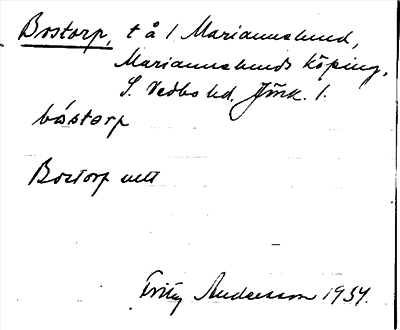 Bostorp, t å 1 Mariannelund,
Mariannelunds köping,
S. Vedbo hd. Jönk. l.
bóstorp
Bostorp vett
Fritz Andersson 1934.